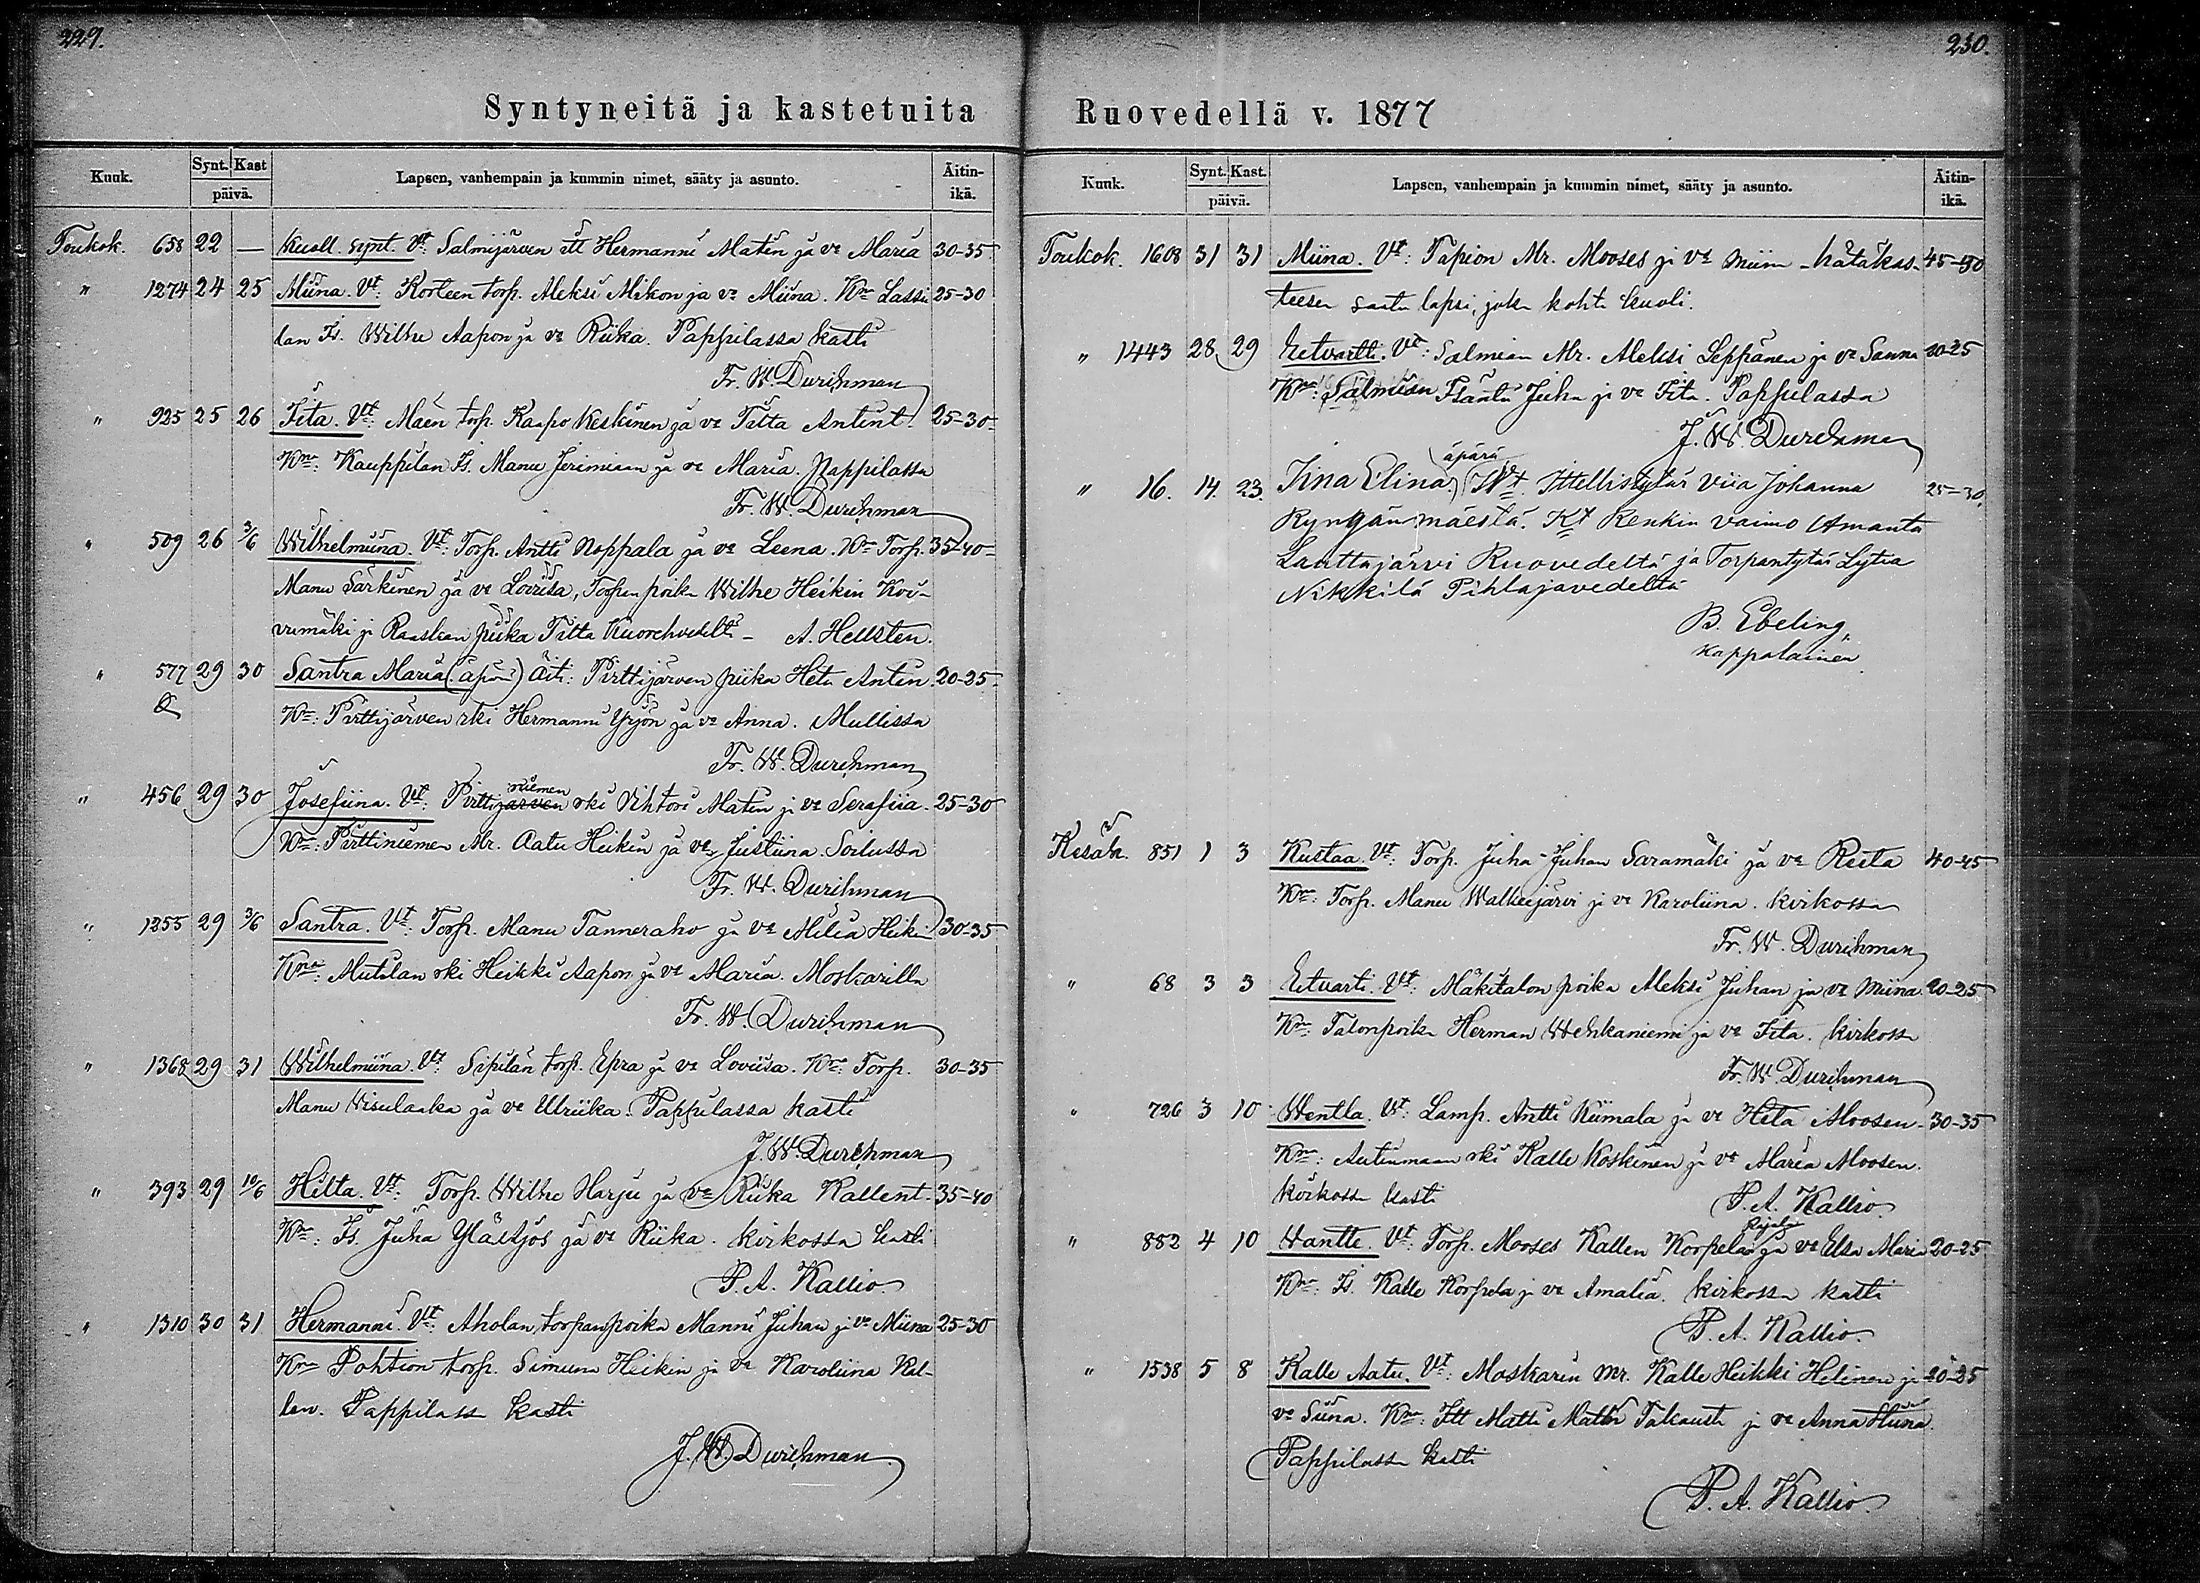 229.
Syntyneitä ja kastetuita
Kuuk. Synt. Kast päivä. Lapsen, vanhempain ja kummin nimet, sääty ja asunto. Äitin-ikä.
Toukok. 658 22 — Kuoll. synt. Vt: Salmijärven itt Hermanni Matin ja vo Maria 30-35
" 1274 24 25 Miina. Vt: Korteen torp. Aleksi Mikon ja vo Miina. Kmt Lassi- 25-30
lan Is. Wilhe Aapon ja vo Riika. Pappilassa kasti
Fr. W. Durchman
" 925 25 26 Fita. Vt: Mäen torp. Kaapo Keskinen ja vo Titta Antint. 25-30
Kmt: Kauppilan Is. Manu Jerimian ja vo Maria. Pappilassa
Fr. W. Durchman
" 509 26 3/6 Wilhelmiina. Vt: Torp. Antti Noppala ja vo Leena. Kmt Torp. 35-40
Manu Särkinen ja vo Loviisa, Torpan poika Wilhe Heikin Koi-
vumäki ja piika Titta Kuorehvedeltä – A. Hellsten.
" 577 29 30 Santra Maria (äpärä) Äiti: Pirttijärven piika Heta Antin. 20-25
Kmt: Pirttijärven rki Hermanni Yrjön ja vo Anna. Mullissa
Fr. W. Durchman
" 456 29 30 Josefiina. Vt: Pirttijärven niemen rki Vihtori Matin ja vo Serafiia. 25-30
Kmt: Pirttiniemen Mr. Aatu Heikin ja vo Justiina. Soilussa
Fr. W. Durchman
" 1255 29 3/6 Santra. Vt: Torp. Manu Tanneraho ja vo Milia Heikin 30-35
Kmt: Mutilan rki Heikki Aapon ja vo Maria. Moskarilla
Fr. W. Durchman
" 1368 29 31 Wilhelmiina. Vt: Sipilän torp. Epra ja vo Loviisa. Kmt: Torp. 30-35
Manu Visulaaka ja vo Ulriika. Pappilassa kasti
J. W. Durchman
" 393 29 10/6 Hilta. Vt: Torp. Wilhe Harju ja vo Riika Kallent. 35-40
Kmt: Is. Juha Yläitjös ja vo Riika. Kirkossa kasti
P. A. Kallio.
" 1310 30 31 Hermanni. Vt: Aholan, torpanpoika Manni Juhan ja vo Miina 25-30
Kmt Pohtion torp. Simuna Heikin ja vo Karoliina Kal-
len. Pappilassa kasti
J. W. Durchman
230.
Ruovedellä v. 1877
Kuuk. Synt. Kast. päivä. Lapsen, vanhempain ja kummin nimet, sääty ja asunto. Äitin-ikä.
Toukok. 1608 31 31 Miina. Vt: Tapion Mr. Mooses ja vo Miina – hätäkas- 45-50
teesen saatu lapsi, joka kohta kuoli.
" 1443 28 29 Eetvartti. Vt: Salmian Mr. Aleksi Leppänen ja vo Sanna 20-25
Kmt: Salmian Isäntä Juha ja vo Fita. Pappilassa
J. W. Durchman
" 16. 14. 23. Iina Elina. (äpärä) Vt. Ittellistytär Viia Johanna 25-30
Ryngän mäestä. Kt Renkin vaimo Amanta
Lauttajärvi Ruovedeltä ja Torpantytär Lytia
Nikkilä Pihlajavedeltä
B. Ebeling,
kappalainen
Kesäk. 851 1 3 Kustaa. Vt: Torp. Juha Juhan Saramäki ja vo Reeta 40-45
Kmt: Torp. Manu Walkeejärvi ja vo Karoliina. Kirkossa
Fr. W. Durchman
" 68 3 3 Eetvarti. Vt: Mäkitalon poika Aleksi Juhan ja vo Miina. 20-25
Kmt: Talonpoika Herman Wehkaniemi ja vo Fita. Kirkossa
Fr. W. Durchman
" 726 3 10 Wentla. Vt: Lamp. Antti Kiimala ja vo Heta Moosen. 30-35
Kmt: Autinmaan rki Kalle Koskinen ja vo Maria Moosen.
kirkossa kasti P. A. Kallio.
" 882 4 10 Wantte. Vt: Torp. Mooses Kallen Korpelan ja vo Elsa Maria 20-25
Kmt: Is. Kalle Korpela ja vo Amalia. Kirkossa kasti
P. A. Kallio.
" 1538 5 8 Kalle Aatu. Vt: Moskarin Mr. Kalle Heikki Helinen ja 20-25
vo Siina. Kmt: Itt Matti Matin Takausta ja vo Anna Miina.
Pappilassa kasti
P. A. Kallio